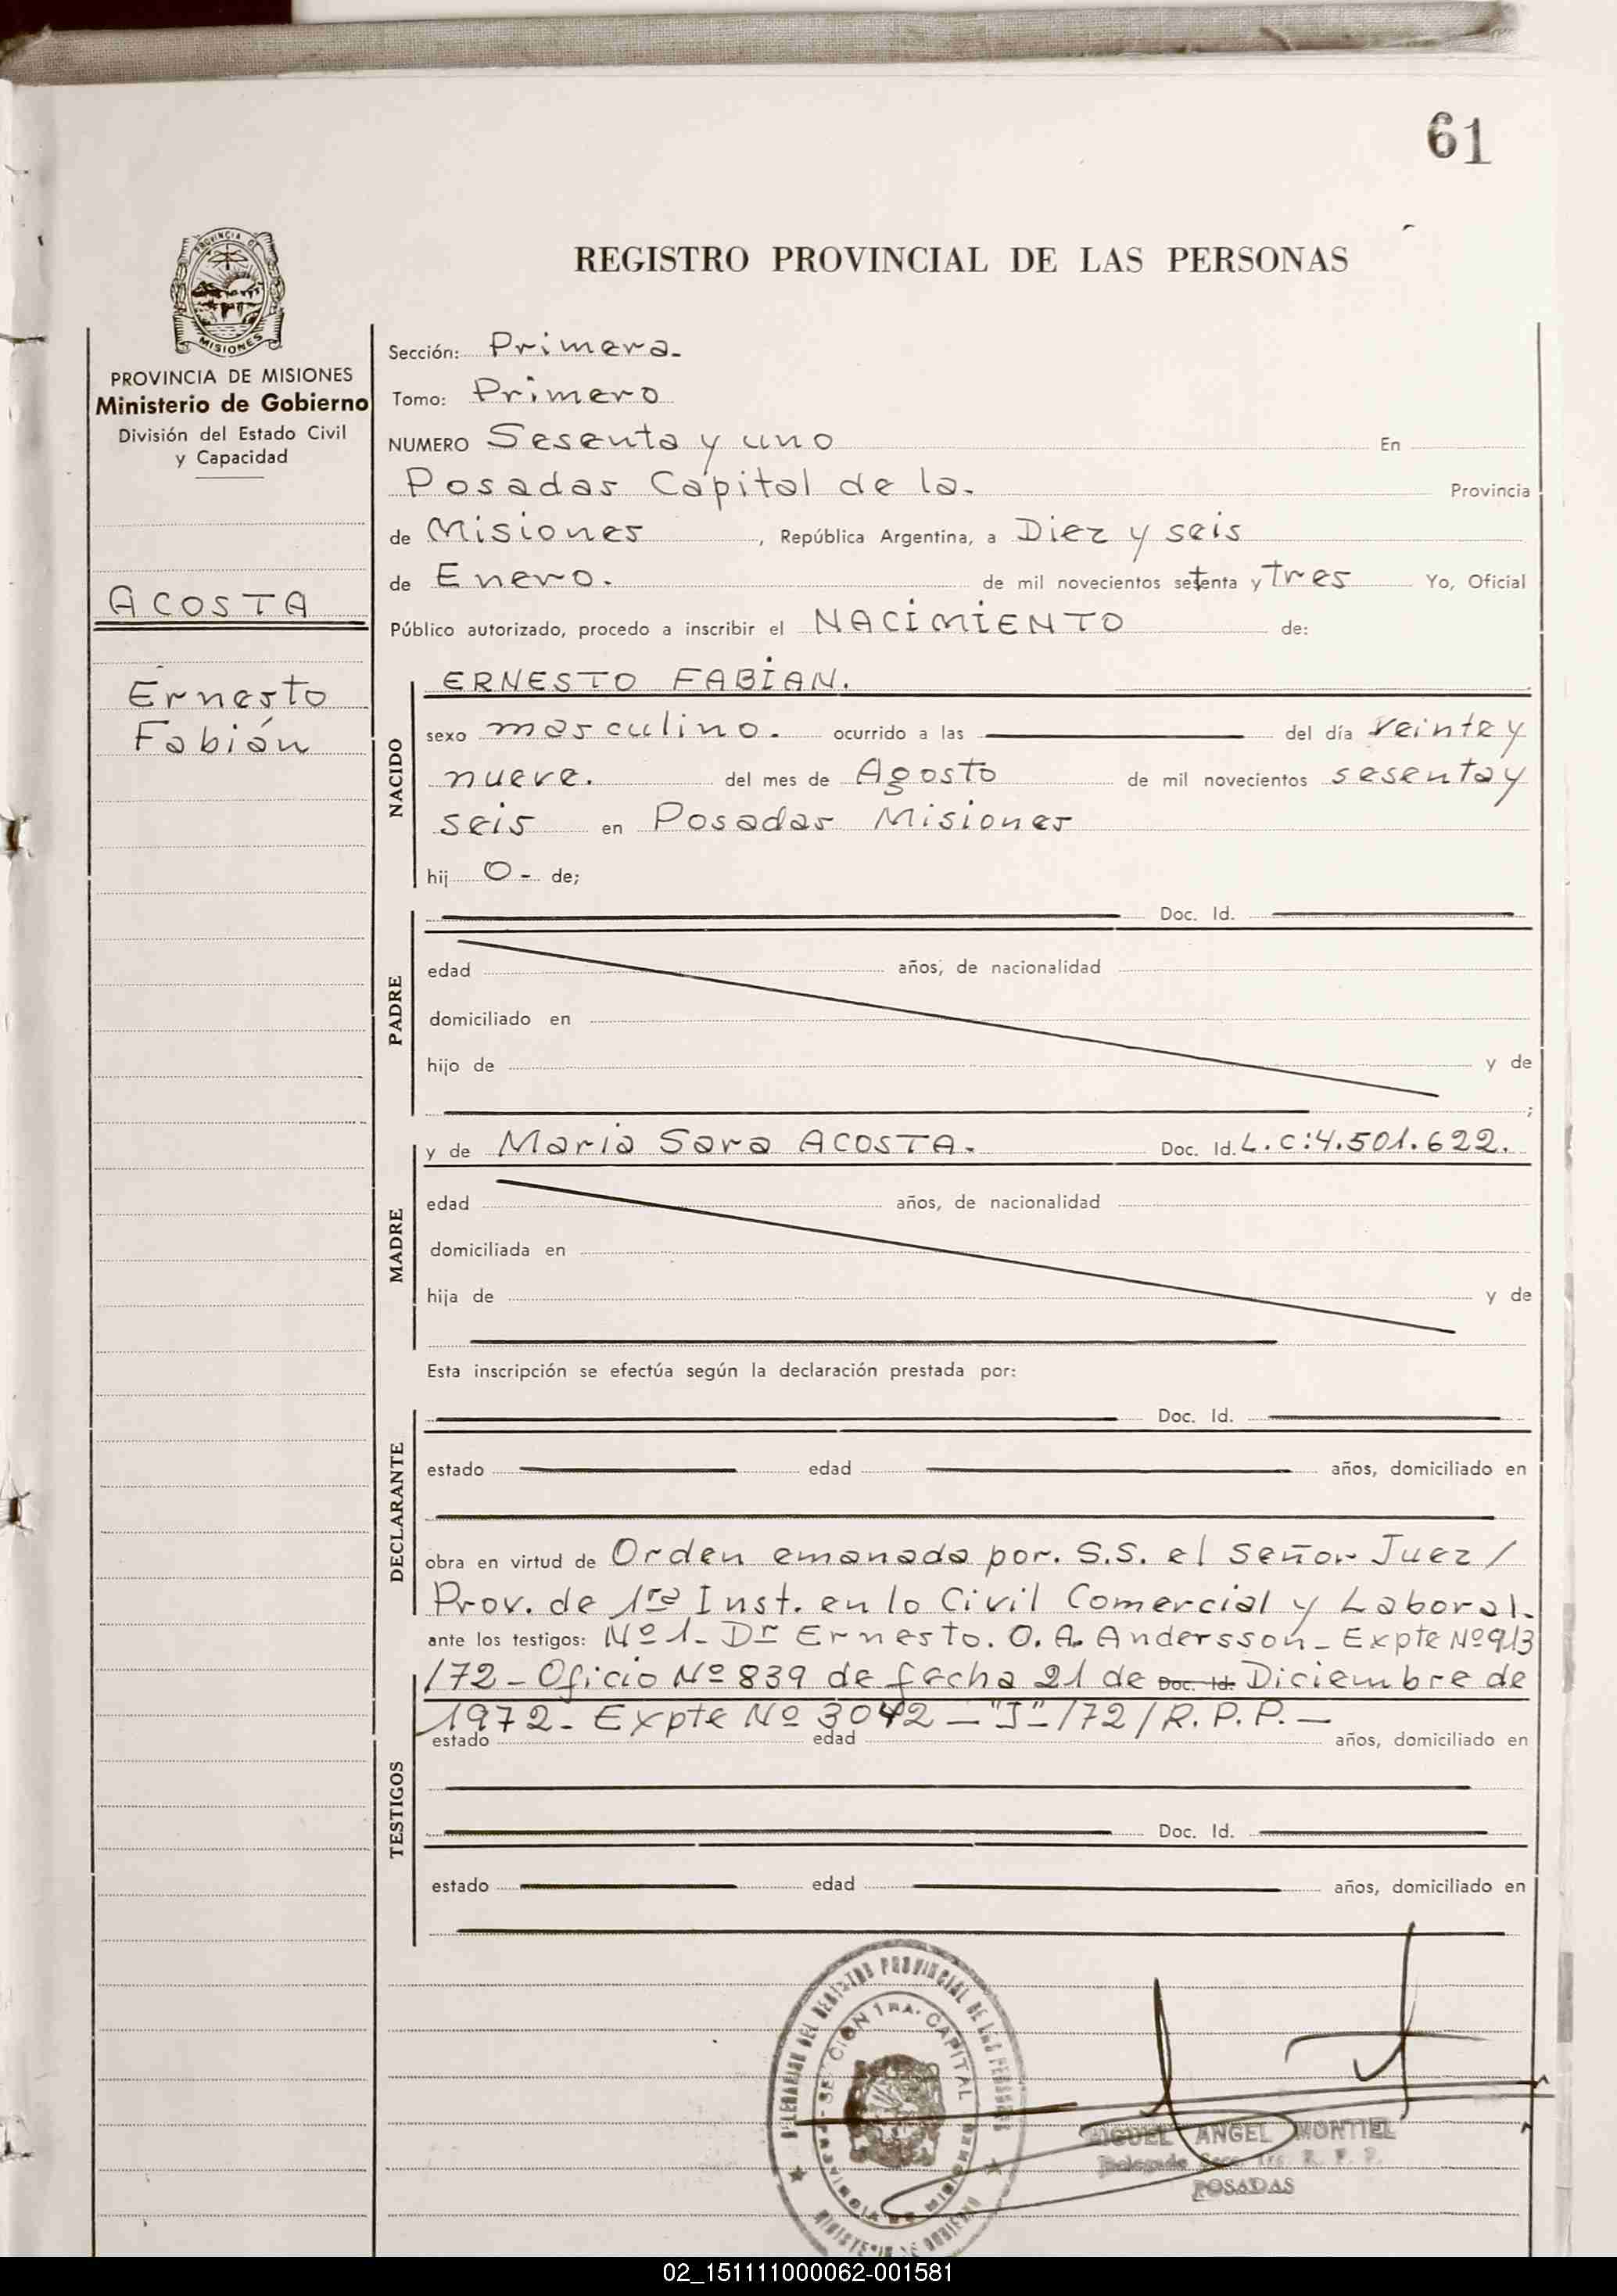 61
PROVINCIA DE
MISIONES
REGISTRO PROVINCIAL DE LAS PERSONAS
PROVINCIA DE MISIONES
Ministerio de Gobierno
División del Estado Civil
y Capacidad
ACOSTA
Ernesto
Fabián
Sección: Primera.
Tomo: Primero
NUMERO Sesenta y uno En
Posadas Capital de la. Provincia
de Misiones, República Argentina, a Diez y seis
de Enero. de mil novecientos setenta y tres Yo, Oficial
Público autorizado, procedo a inscribir el NACIMIENTO de:
NACIDO
ERNESTO FABIAN.
sexo masculino. ocurrido a las del día veinte y
nueve. del mes de Agosto de mil novecientos sesenta y
seis en Posadas Misiones
hij o- de;
PADRE
Doc. Id.
edad años, de nacionalidad
domiciliado en
hijo de y de
;
MADRE
y de Maria Sara ACOSTA. Doc. Id. L.C:4.501.622.
edad años, de nacionalidad
domiciliada en
hija de y de
Esta inscripción se efectúa según la declaración prestada por:
DECLARANTE
Doc. Id.
estado edad años, domiciliado en
obra en virtud de Orden emanada por. S.S. el señor Juez /
Prov. de 1ra Inst. en lo Civil Comercial y Laboral.
ante los testigos: Nº 1- Dr Ernesto. O. A. Andersson - Expte Nº 913
/72 - Oficio Nº 839 de fecha 21 de Doc. Id. Diciembre de
1972 - Expte Nº 3042 - "J" - /72 / R. P. P. -
TESTIGOS
estado edad años, domiciliado en
Doc. Id.
estado edad años, domiciliado en
DEL REGISTRO PROVINCIAL DE LAS PERSONAS
SECCION 1RA. CAPITAL
PROVINCIA DE MISIONES
MINISTERIO DE GOBIERNO
MIGUEL ANGEL MONTIEL
Delegado Secc. 1ra. R. P. P.
POSADAS
02_151111000062-001581